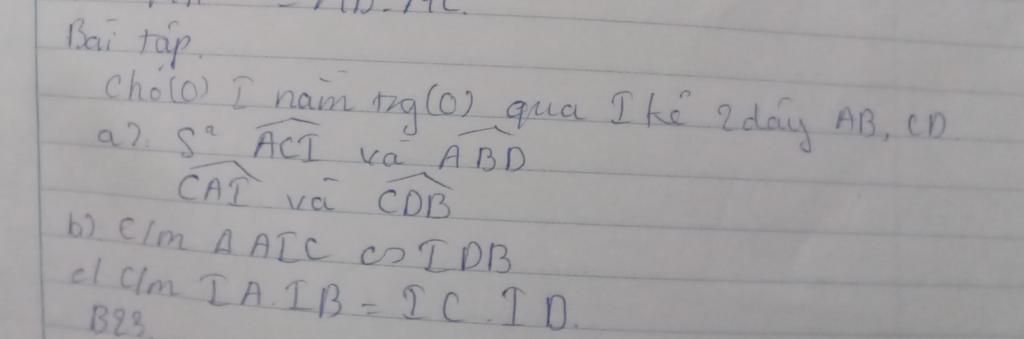 Bài tập.
Cho (O) I nằm trg (O) qua I kẻ 2 dây AB, CD
a). S² ACI và ABD
CAI và CDB
b) C/m Δ AIC ∽ IDB
c) C/m IA.IB = IC.ID.
B23